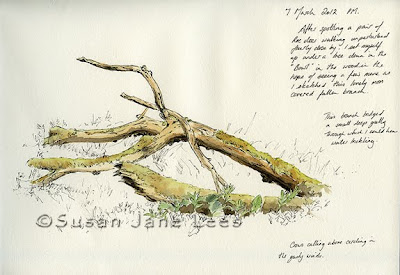 7 March 2012 PM.
After spotting a pair of
Roe deer walking unperturbed
fairly close by. I set myself
up under a tree down in the
"Bowl" in the woods in the
hope of seeing a few more as
I sketched this lovely moss
covered fallen branch.
This branch bridged
a small deep gulley
through which I could hear
water trickling.
©Susan Jane Lees
Crows calling above circling in
the gusty winds.